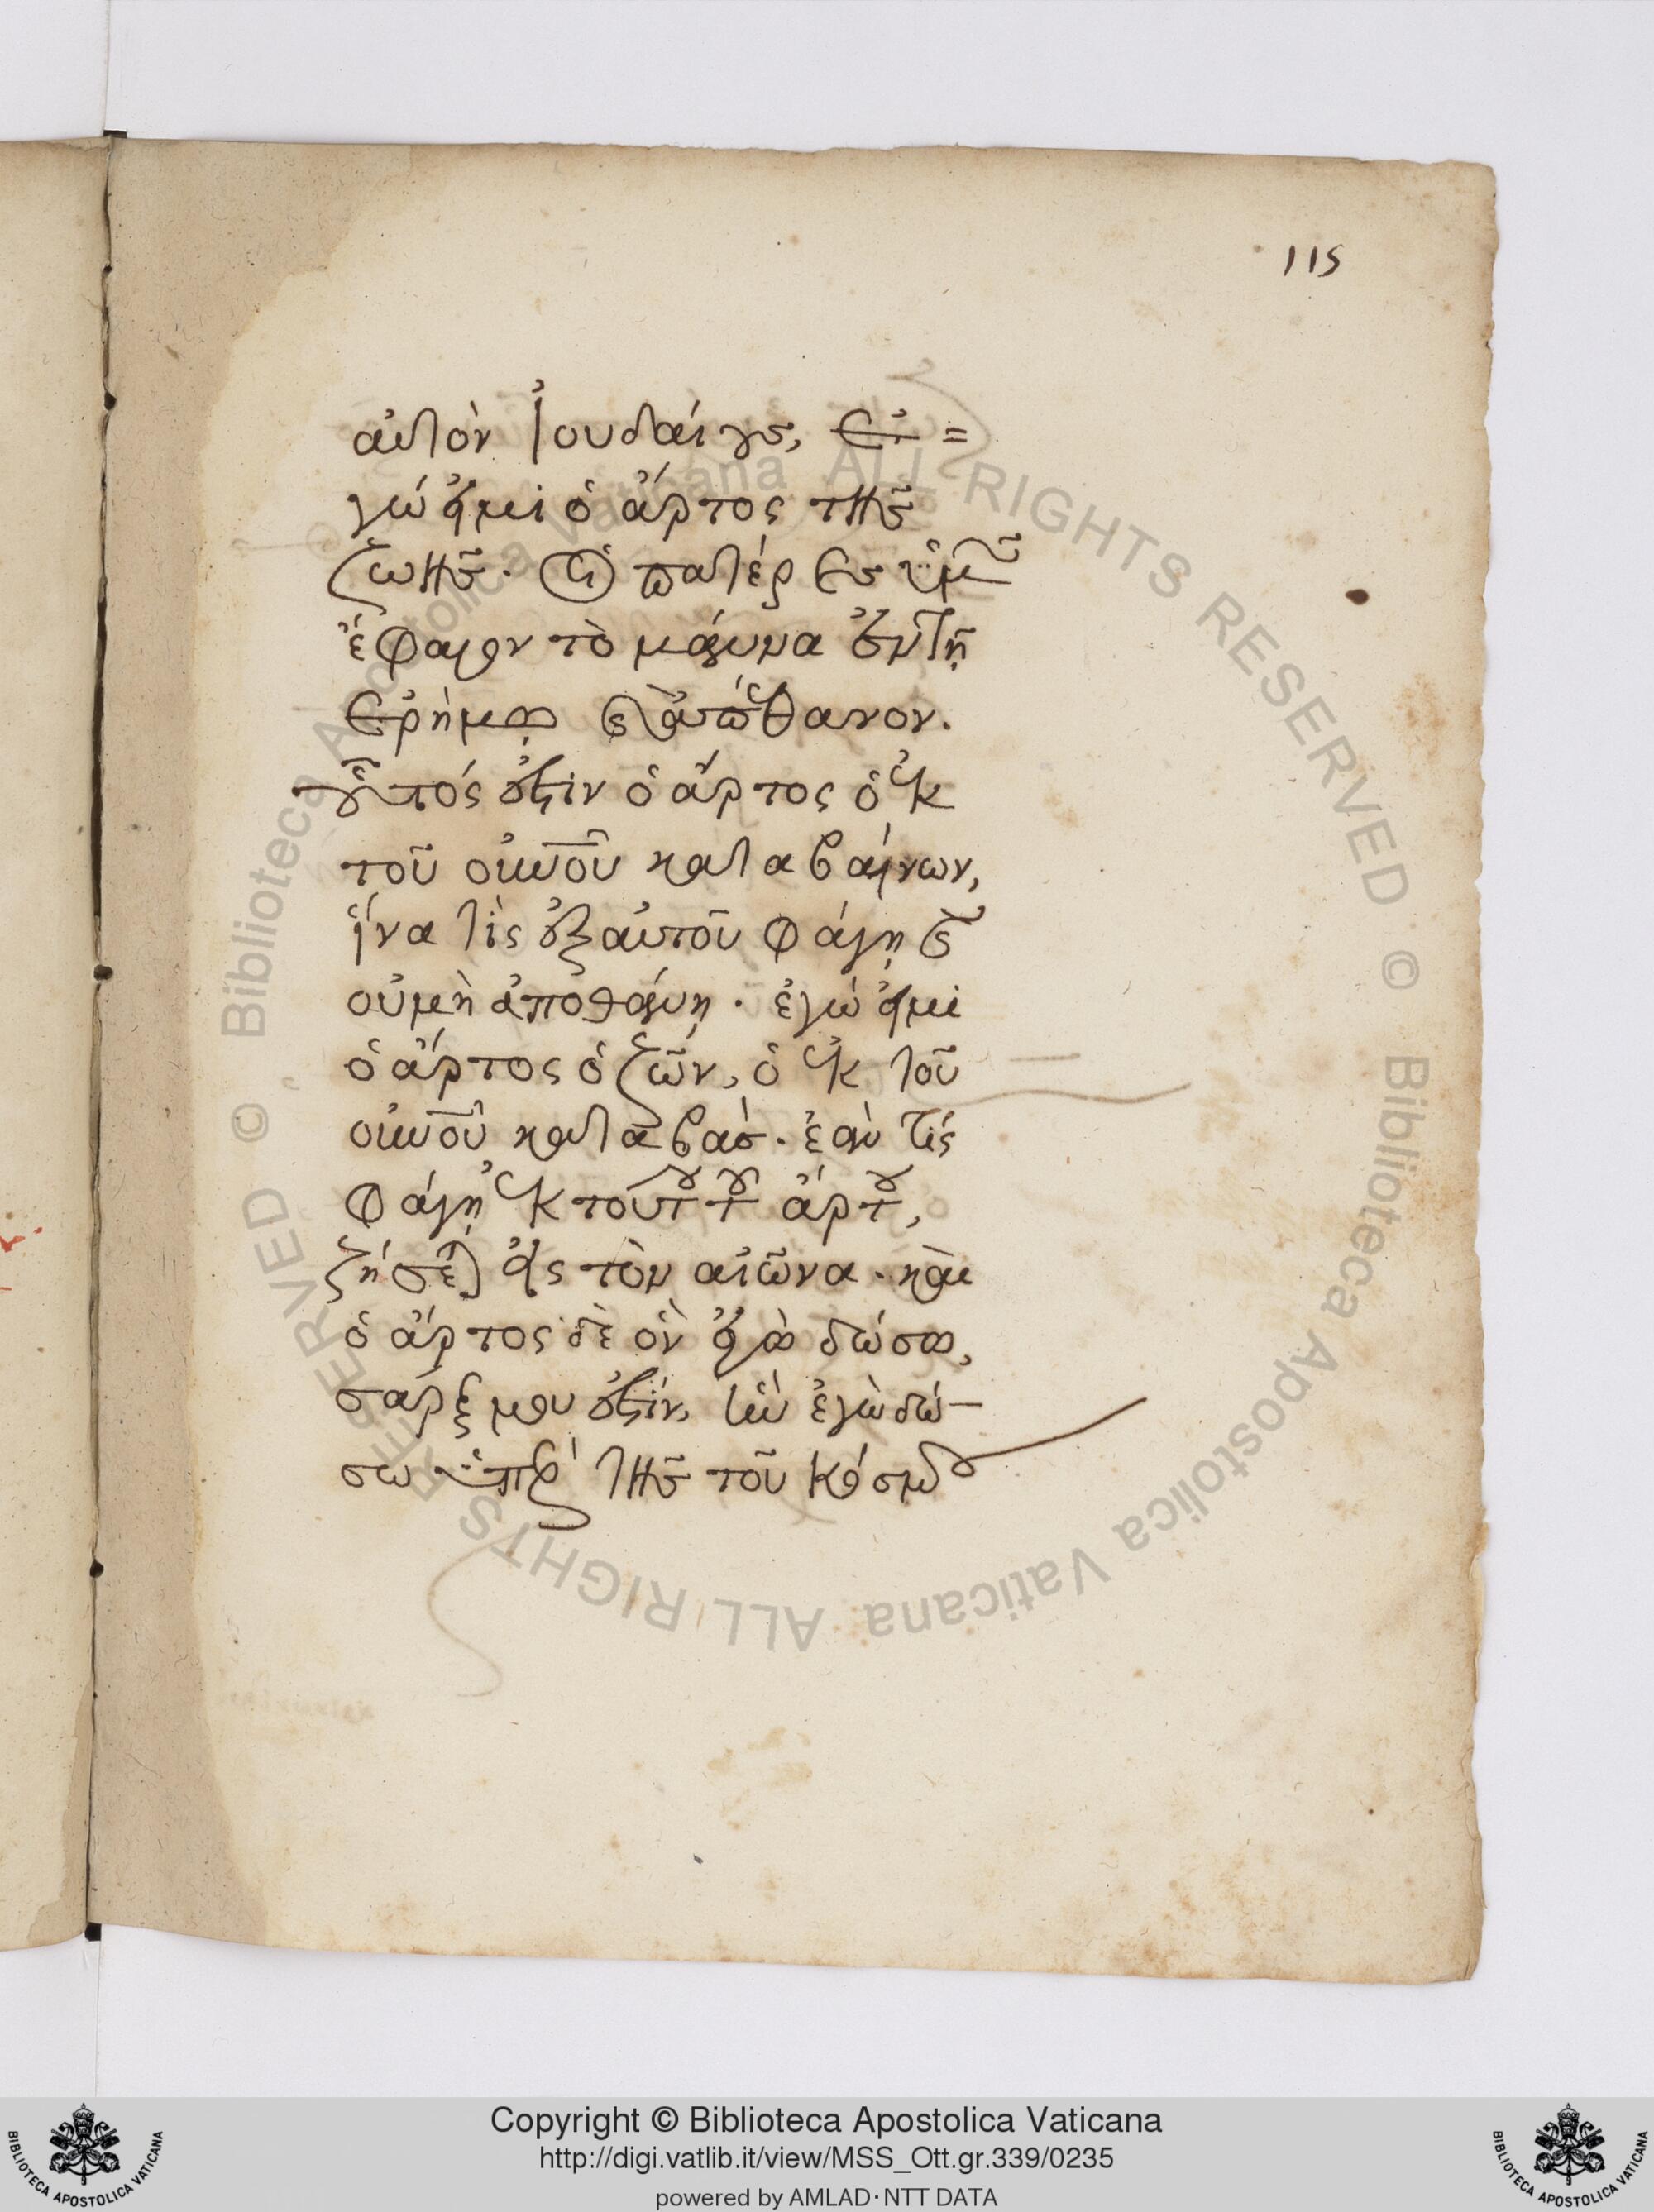 115
αὐτὸν Ἰουδαίους, Ἐ=
γώ εἰμι ὁ ἄρτος τῆς
ζωῆς. Οἱ πατέρες ὑμῶν
ἔφαγον τὸ μάννα ἐν τῇ
ἐρήμῳ καὶ ἀπέθανον.
οὗτός ἐστιν ὁ ἄρτος ὁ ἐκ
τοῦ οὐνοῦ καταβαίνων,
ἵνα τὶς ἐξ αὐτοῦ φάγῃ καὶ
οὐ μὴ ἀποθάνῃ. ἐγώ εἰμι
ὁ ἄρτος ὁ ζῶν, ὁ ἐκ τοῦ
οὐνοῦ καταβάς. ἐάν τίς
φάγῃ ἐκ τούτου τοῦ ἄρτου,
ζήσεται εἰς τὸν αἰῶνα. καὶ
ὁ ἄρτος δὲ ὃν ἐγὼ δώσω,
σάρξ μου ἐστίν, ἣν ἐγὼ δώ-
σω ὑπὲρ τῆς τοῦ κόσμου
Biblioteca Apostolica Vaticana ALL RIGHTS RESERVED © Biblioteca Apostolica Vaticana ALL RIGHTS RESERVED ©
Copyright © Biblioteca Apostolica Vaticana
http://digi.vatlib.it/view/MSS_Ott.gr.339/0235
powered by AMLAD·NTT DATA
BIBLIOTECA APOSTOLICA VATICANA
BIBLIOTECA APOSTOLICA VATICANA